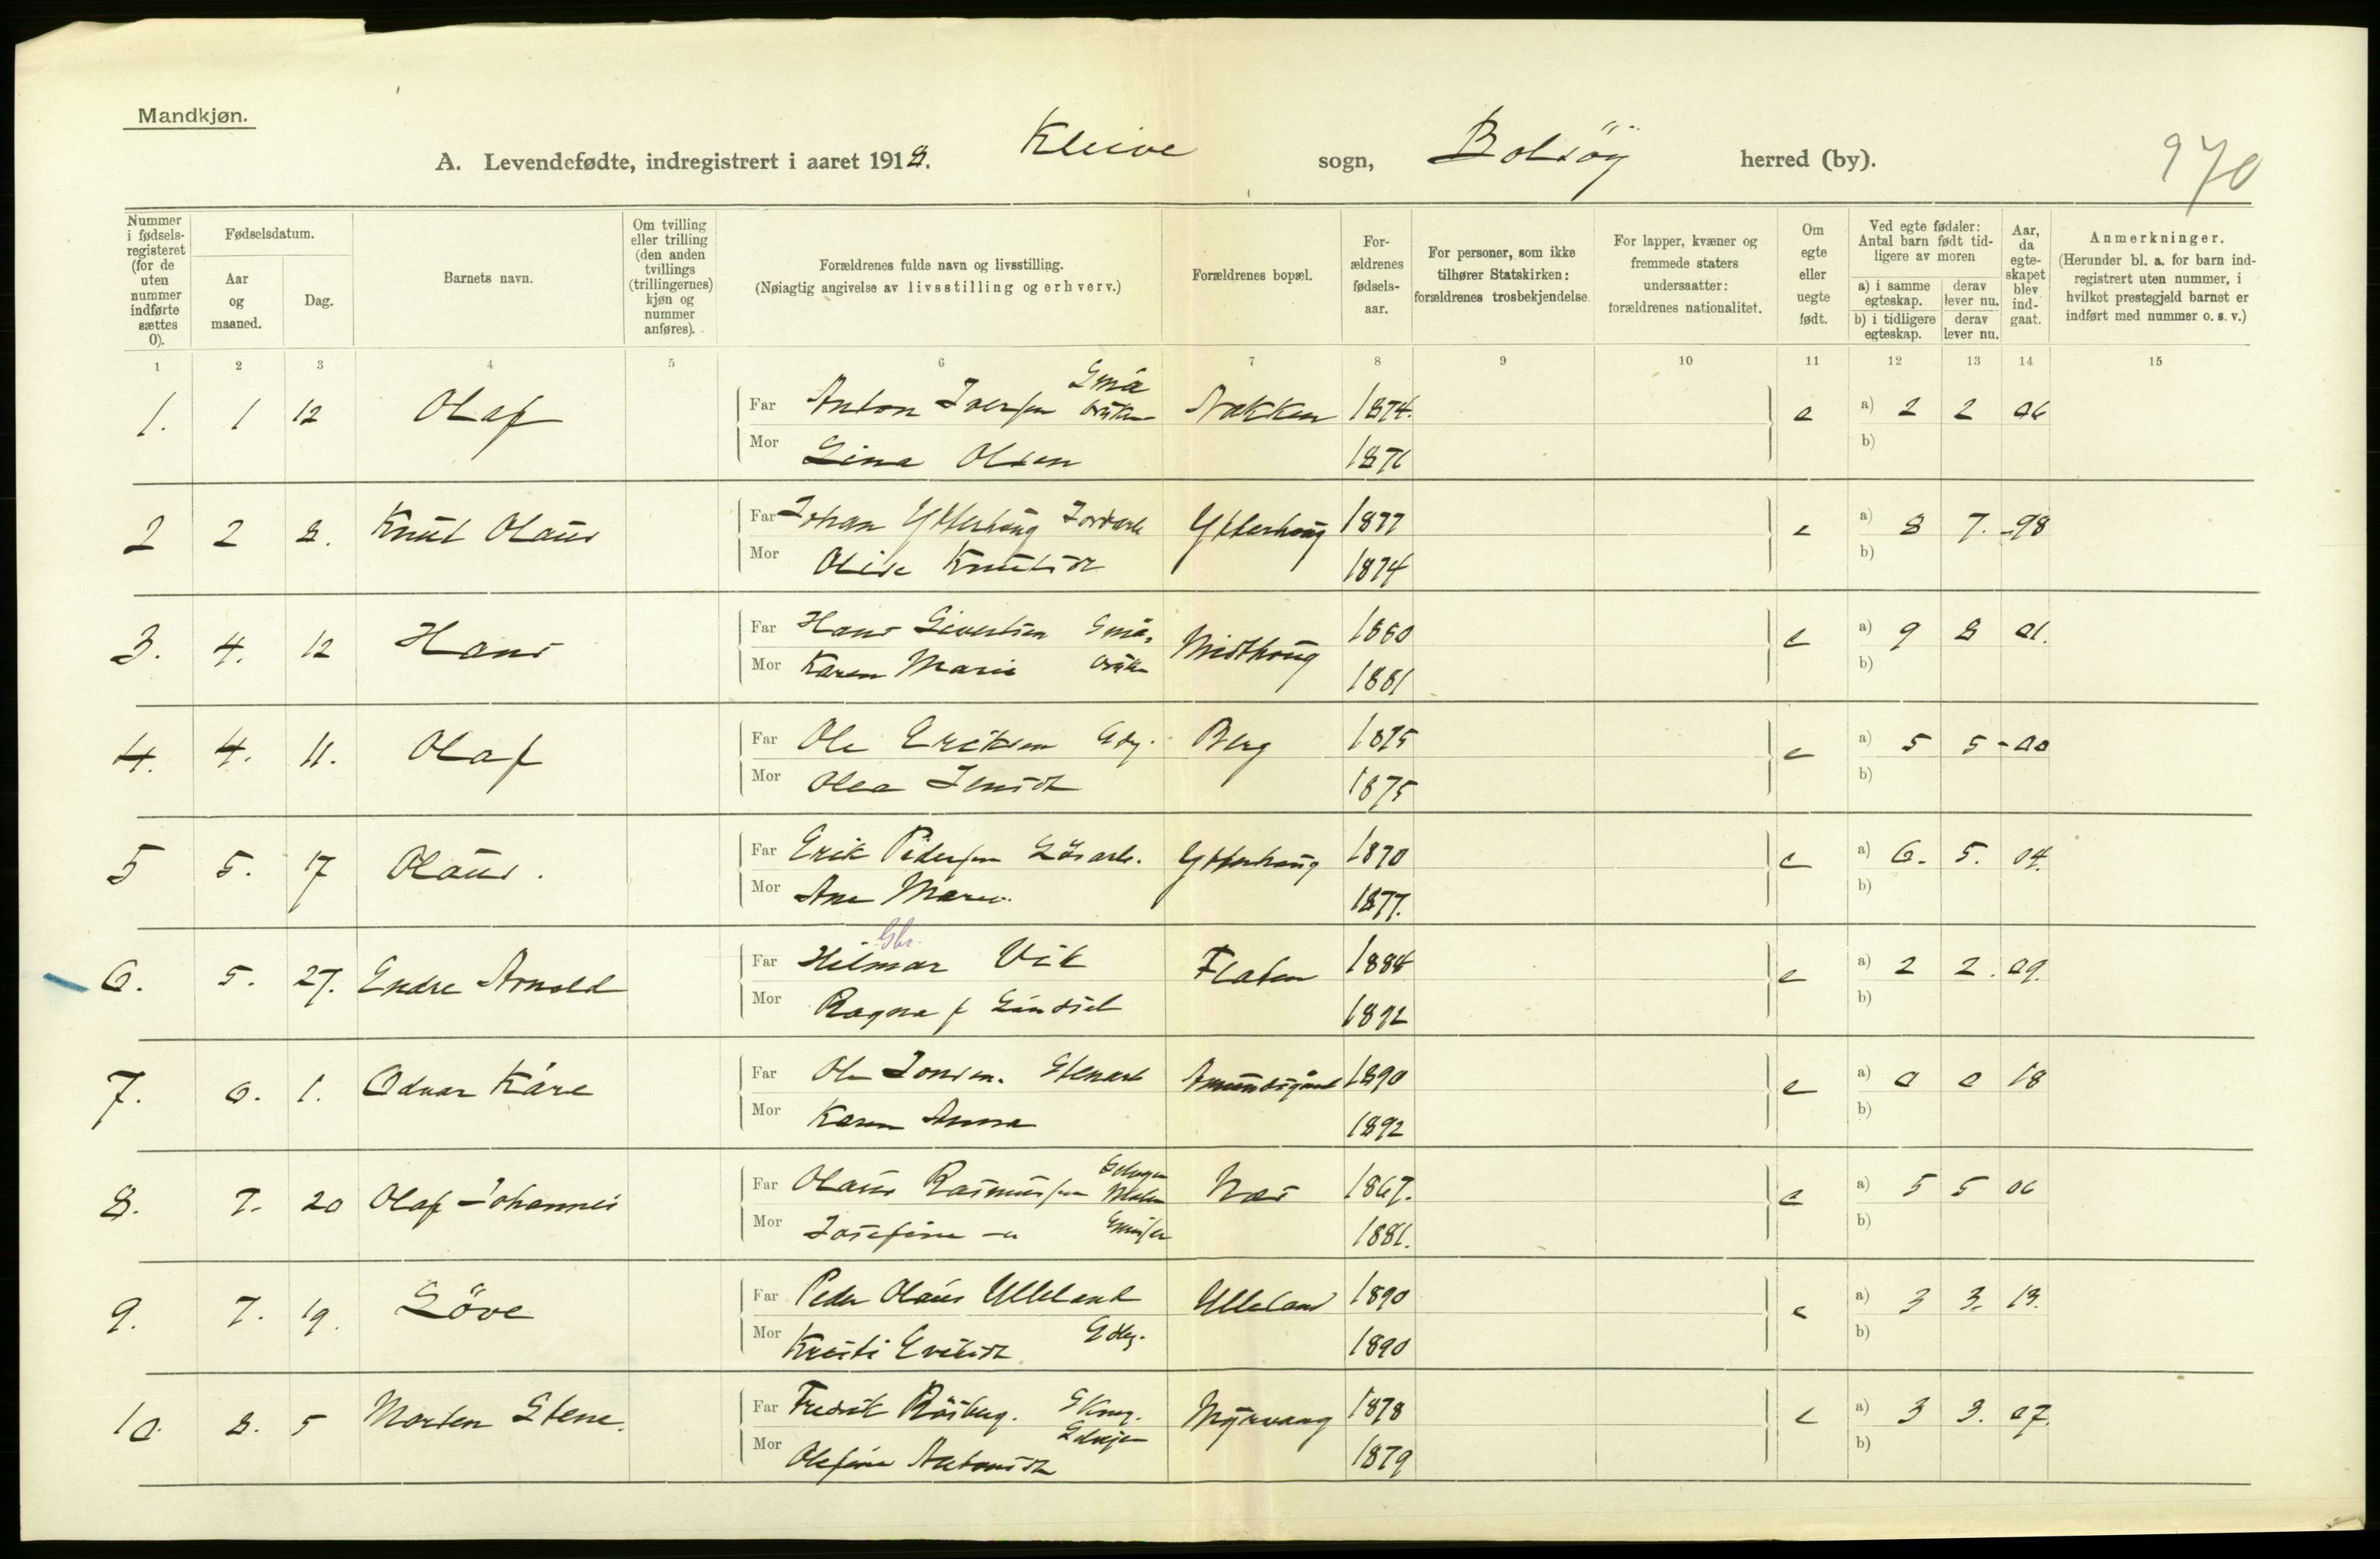 Mandkjøn.
A. Levendefødte, indregistrert i aaret 1918. Kleive sogn, Bolsöy herred (by).
970
Nummer i fødsels-registeret (for de uten nummer indførte sættes 0).
Fødselsdatum.
Aar og maaned.
Dag.
Barnets navn.
Om tvilling eller trilling (den anden tvillings (trillingernes) kjøn og nummer anføres).
Forældrenes fulde navn og livsstilling.
(Nøiagtig angivelse av livsstilling og erhverv.)
Forældrenes bopæl.
For-ældrenes fødsels-aar.
For personer, som ikke tilhører Statskirken: forældrenes trosbekjendelse
For lapper, kvæner og fremmede staters undersaatter: forældrenes nationalitet.
Om egte eller uegte født.
Ved egte fødsler: Antal barn født tid-ligere av moren
a) i samme egteskap.
derav lever nu.
b) i tidligere egteskap.
derav lever nu.
Aar, da egte-skapet blev ind-gaat.
Anmerkninger.
(Herunder bl. a. for barn ind-registrert uten nummer, i hvilket prestegjeld barnet er indført med nummer o. s. v.)
1 2 3 4 5 6 7 8 9 10 11 12 13 14 15
1. 1 12 Olaf Far Anton Iversen Små bruker Nakken 1874. e a) 2 2 06
Mor Lina Olsen 1876 b)
2 2 8. Knut Olaus Far Johan Ytterhaug Jordarb Ytterhaug 1877 e a) 8 7. -98
Mor Olise Knutsdt 1874 b)
3. 4. 12 Hans Far Hans Sivertsen Små- Midthaug 1880 e a) 9 8 01.
Mor Karen Marie bruker 1881 b)
4. 4. 11. Olaf Far Ole Eriksen Gbr. Berg 1875 e a) 5 5 -00
Mor Olea Jensdt 1875 b)
5 5. 17 Olaus. Far Erik Pedersen Lösarb. Ytterhaug 1870 e a) 6. 5. 04.
Mor Ane Marie. 1877. b)
Gbr.
6. 5. 27. Endre Arnold Far Hilmar Vik Flaten 1884 e a) 2 2. 09.
Mor Ragna f 1892 b)
7. 6. 1. Odvar Kåre Far Ole Jonsen. Stenarb Amundsgård 1890 e a) 0 0 18
Mor Karen Anna 1892 b)
8. 7. 20 Olaf Johannes Far Olaus Rasmussen Maler Nas 1867. e a) 5 5 06
Mor Josefine 1881. b)
9. 7. 19. Löve Far Peder Olaus Ulleland Ulleland 1890 e a) 3 3. 13.
Mor Kristi Eriksdt Gbr. 1890 b)
10. 8. 5 Morten Stene. Far Fredrik Rösberg. Skom. Myrvang 1878 e a) 3 3. 07.
Mor Olefine Antonsdt 1879 b)